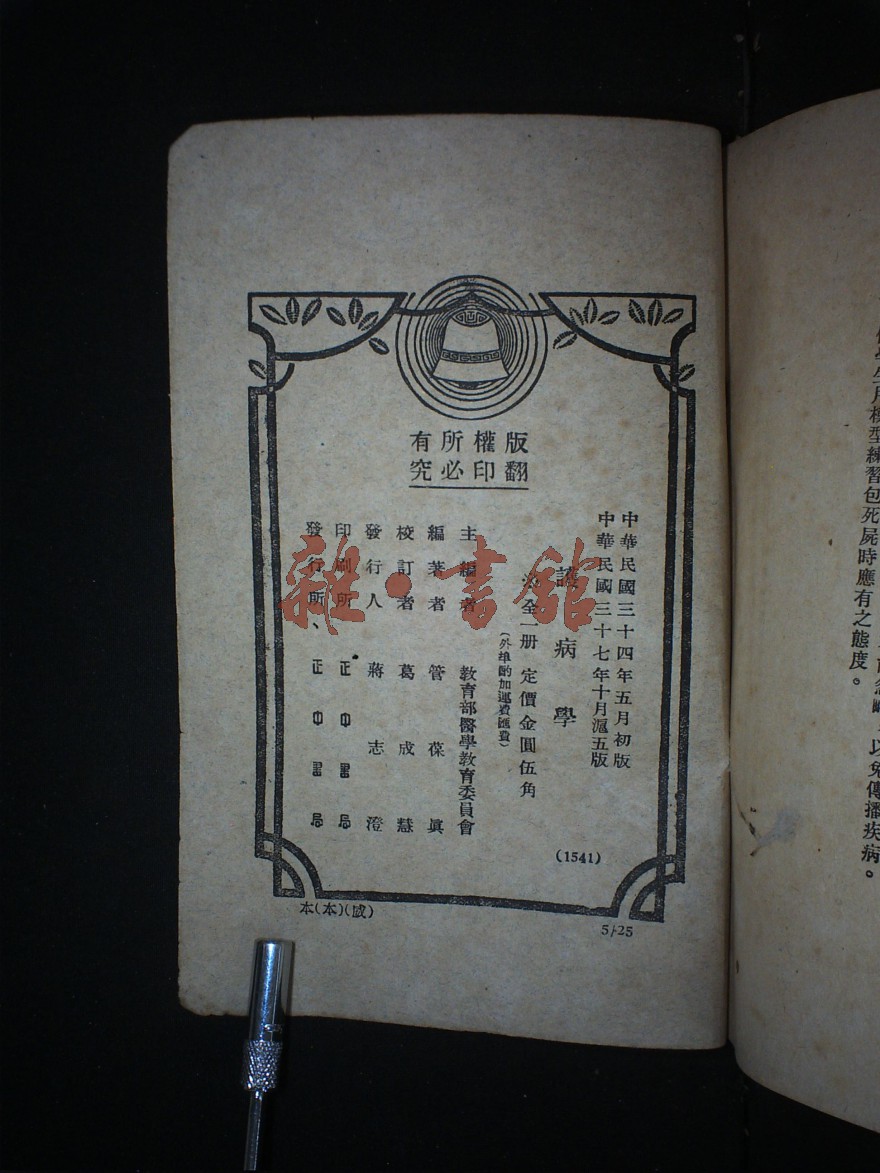 版權所有
翻印必究
中華民國三十四年五月初版
中華民國三十七年十月滬五版
護病學
全一册 定價金圓伍角
(外埠酌加運費匯費)
主編者 教育部醫學教育委員會
編著者 管葆眞
校訂者 葛成慧
發行人 蔣志澄
印刷所 正中書局
發行所 正中書局
(1541)
本(本)(威)
5/25
雜·書館
型練習包死屍時應有之態度。
以免傳播疾病。